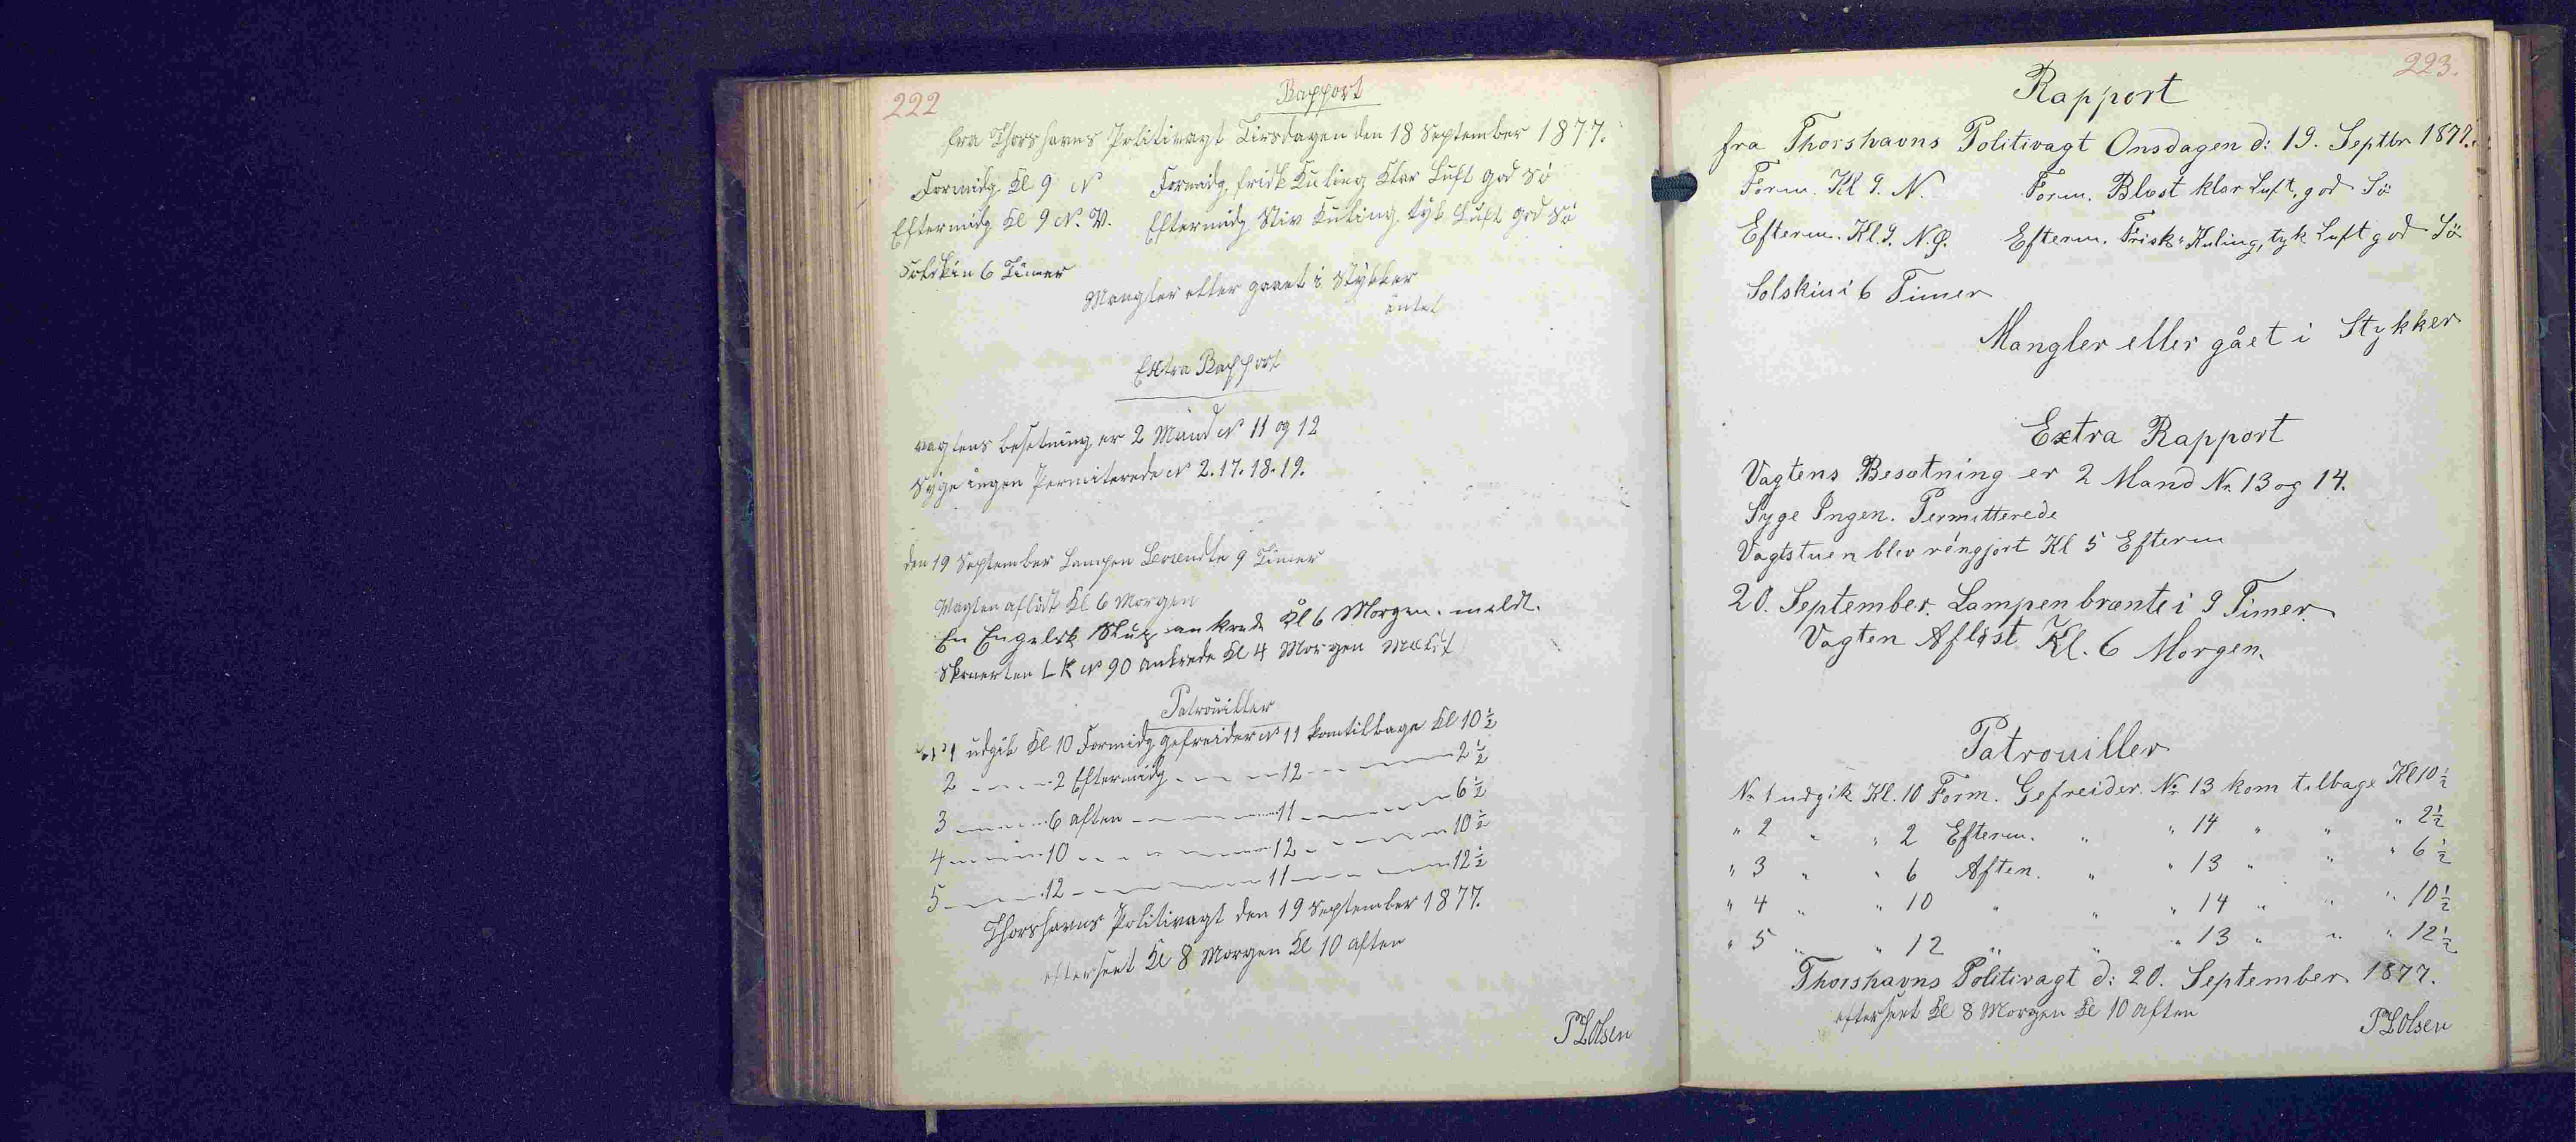 222
Rapport
fra Thorshavns Politivagt Tirsdagen den 18 September 1877.
Formidg Kl 9 N Formidg frisk Kuling Klar Luft god Sö
Eftermidg Kl 9 N. V. Eftermidg Stiv Kuling tyk Luft god Sö
Solskin 6 Timer
Mangler eller gaaet i Stykker
intet
Extra Rapport
vagtens besetning er 2 Mand N 11 og 12
Syge ingen Permiterede N 2. 17. 18. 19.
den 19 September Lampen Brændte 9 Timer
Vagten aflöst Kl 6 Morgen
En Engelsk Slup ankrede Kl 6 Morgen. meldt.
Skonerten LK N 90 ankrede Kl 4 Morgen Meldt
Patrouiller
N 1 udgik Kl 10 Formidg gefreider N 11 kom tilbage Kl 10 ½
2 - - - - 2 Eftermidg - - - 12 - - - - 2 ½
3 - - - - 6 aften - - - - 11 - - - - 6 ½
4 - - - - 10 - - - - 12 - - - - 10 ½
5 - - - - 12 - - - - 11 - - - - 12 ½
Thorshavns Politivagt den 19 September 1877.
efterseet Kl 8 Morgen Kl 10 aften
P Olsen
223.
Rapport
fra Thorshavns Politivagt Onsdagen d: 19. Septbr 1877.
Form. Kl 9. N. Form. Blæst klar Luft, god Sö
Efterm. Kl. 9. N.Ø. Efterm. Frisk Kuling, tyk Luft god Sö
Solskin i 6 Timer
Mangler eller gået i Stykker
Extra Rapport
Vagtens Besætning er 2 Mand Nr. 13 og 14.
Syge Ingen. Permitterede
Vagtstuen blev réngjort Kl 5 Efterm
20. September. Lampen brænte i 9 Timer.
Vagten Afløst Kl. 6 Morgen.
Patrouiller
Nr 1 udgik Kl. 10 Form. Gefreider. Nr. 13 kom tilbage Kl 10 ½
" 2 " " 2 Efterm. " " 14 " " " 2 ½
" 3 " " 6 Aften. " " 13 " " " 6 ½
" 4 " " 10 " " " 14 " " " 10 ½
" 5 " " 12 " " " 13 " " " 12 ½
Thorshavns Politivagt d: 20. September 1877.
efterseet Kl 8 Morgen Kl 10 aften
P Olsen